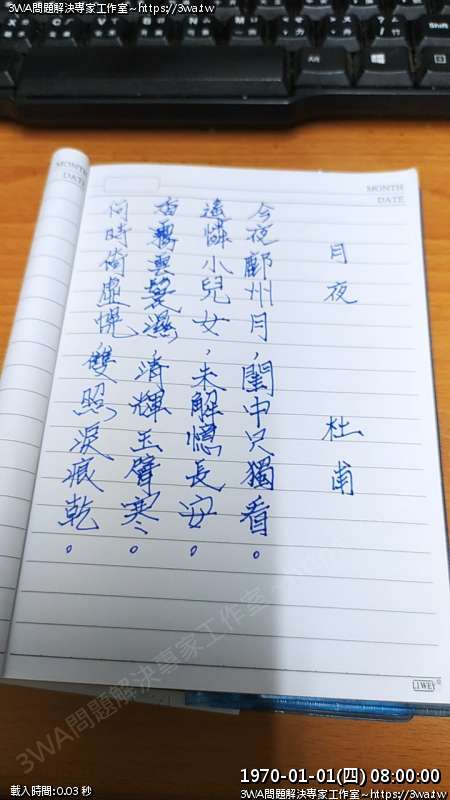 3WA問題解決專家工作室~https://3wa.tw
3WA問題解決專家工作室~https://3wa.tw
MONTH
DATE
MONTH
DATE
月夜 杜甫
今夜鄜州月，閨中只獨看。
遙憐小兒女，未解憶長安。
香霧雲鬟濕，清輝玉臂寒。
何時倚虛幌，雙照淚痕乾。
3WA問題解決專家工作室~https://3wa.tw
1970-01-01(四) 08:00:00
載入時間:0.03 秒
3WA問題解決專家工作室~https://3wa.tw